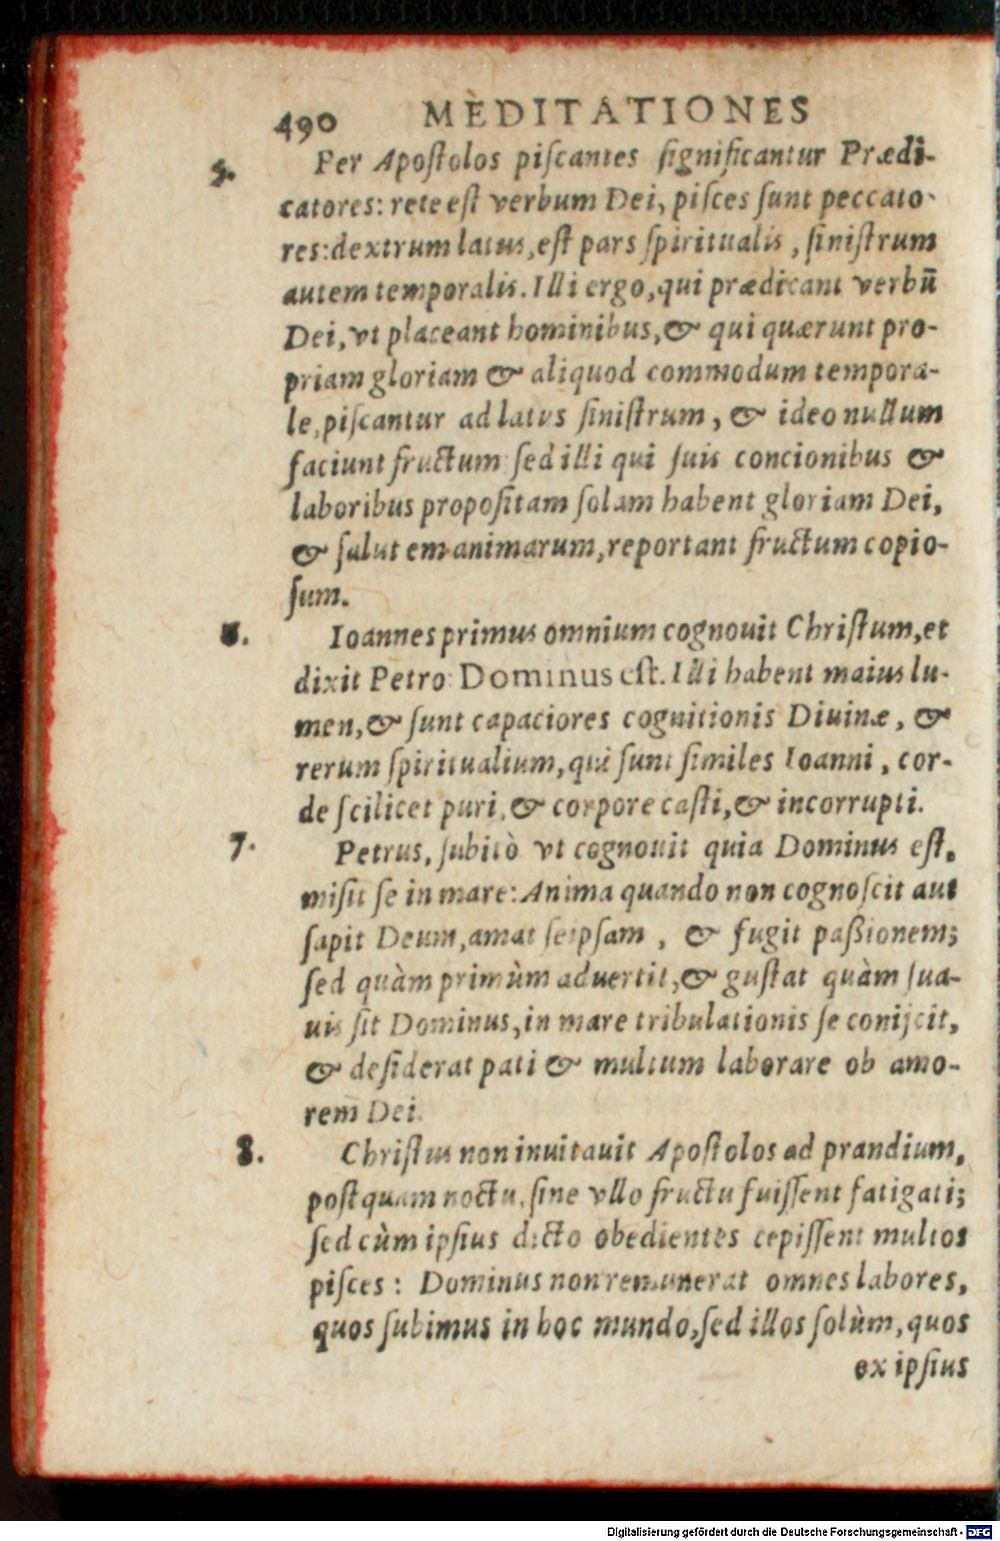 490 MEDITATIONES
5. Per Apoſtolos piſcantes ſignificantur Prædi-
catores: rete eſt verbum Dei, piſces ſunt peccato-
res: dextrum latus, eſt pars ſpiritualis, ſiniſtrum
autem temporalis. Illi ergo, qui prædicant verbū
Dei, vt placeant hominibus, & qui quærunt pro-
priam gloriam & aliquod commodum tempora-
le, piſcantur ad latus ſiniſtrum, & ideo nullum
faciunt fructum ſed illi qui ſuis concionibus &
laboribus propoſitam ſolam habent gloriam Dei,
& ſalutem animarum, reportant fructum copio-
ſum.
6. Ioannes primus omnium cognouit Chriſtum, et
dixit Petro: Dominus eſt. Illi habent maius lu-
men, & ſunt capaciores cognitionis Diuinæ, &
rerum ſpiritualium, qui ſunt ſimiles Ioanni, cor-
de ſcilicet puri, & corpore caſti, & incorrupti.
7. Petrus, ſubitò vt cognouit quia Dominus eſt,
miſit ſe in mare: Anima quando non cognoſcit aut
ſapit Deum, amat ſeipſam, & fugit paßionem;
ſed quàm primùm aduertit, & guſtat quàm ſua-
uis ſit Dominus, in mare tribulationis ſe conijcit,
& deſiderat pati & multum laborare ob amo-
rem Dei.
8. Chriſtus non inuitauit Apoſtolos ad prandium,
poſtquam noctu, ſine vllo fructu fuiſſent fatigati;
ſed cùm ipſius dicto obedientes cepiſſent multos
piſces: Dominus non remunerat omnes labores,
quos ſubimus in hoc mundo, ſed illos ſolùm, quos
ex ipſius
Digitalisierung gefördert durch die Deutsche Forschungsgemeinschaft - DFG